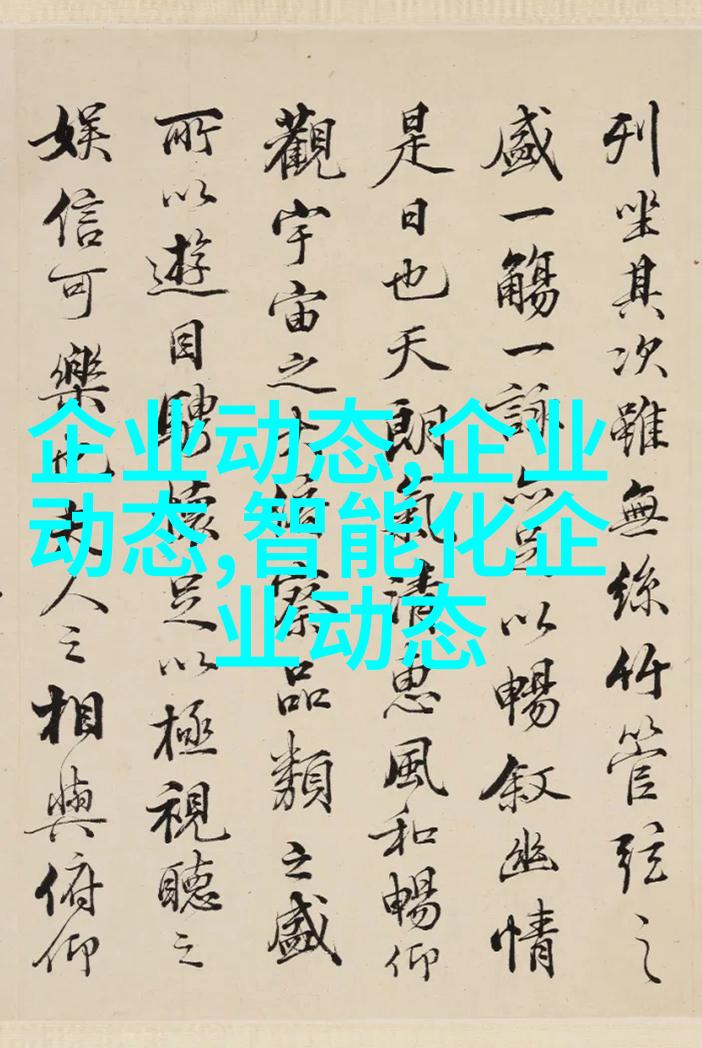 列坐其次雖無絲竹管弦之
盛一觴一詠亦足以暢叙幽情
是日也天朗氣清惠風和暢仰
觀宇宙之大俯察品類之盛
所以遊目騁懷足以極視聽之
娛信可樂也夫人之相與俯仰
企业动态,企业
动态,智能化企
业动态